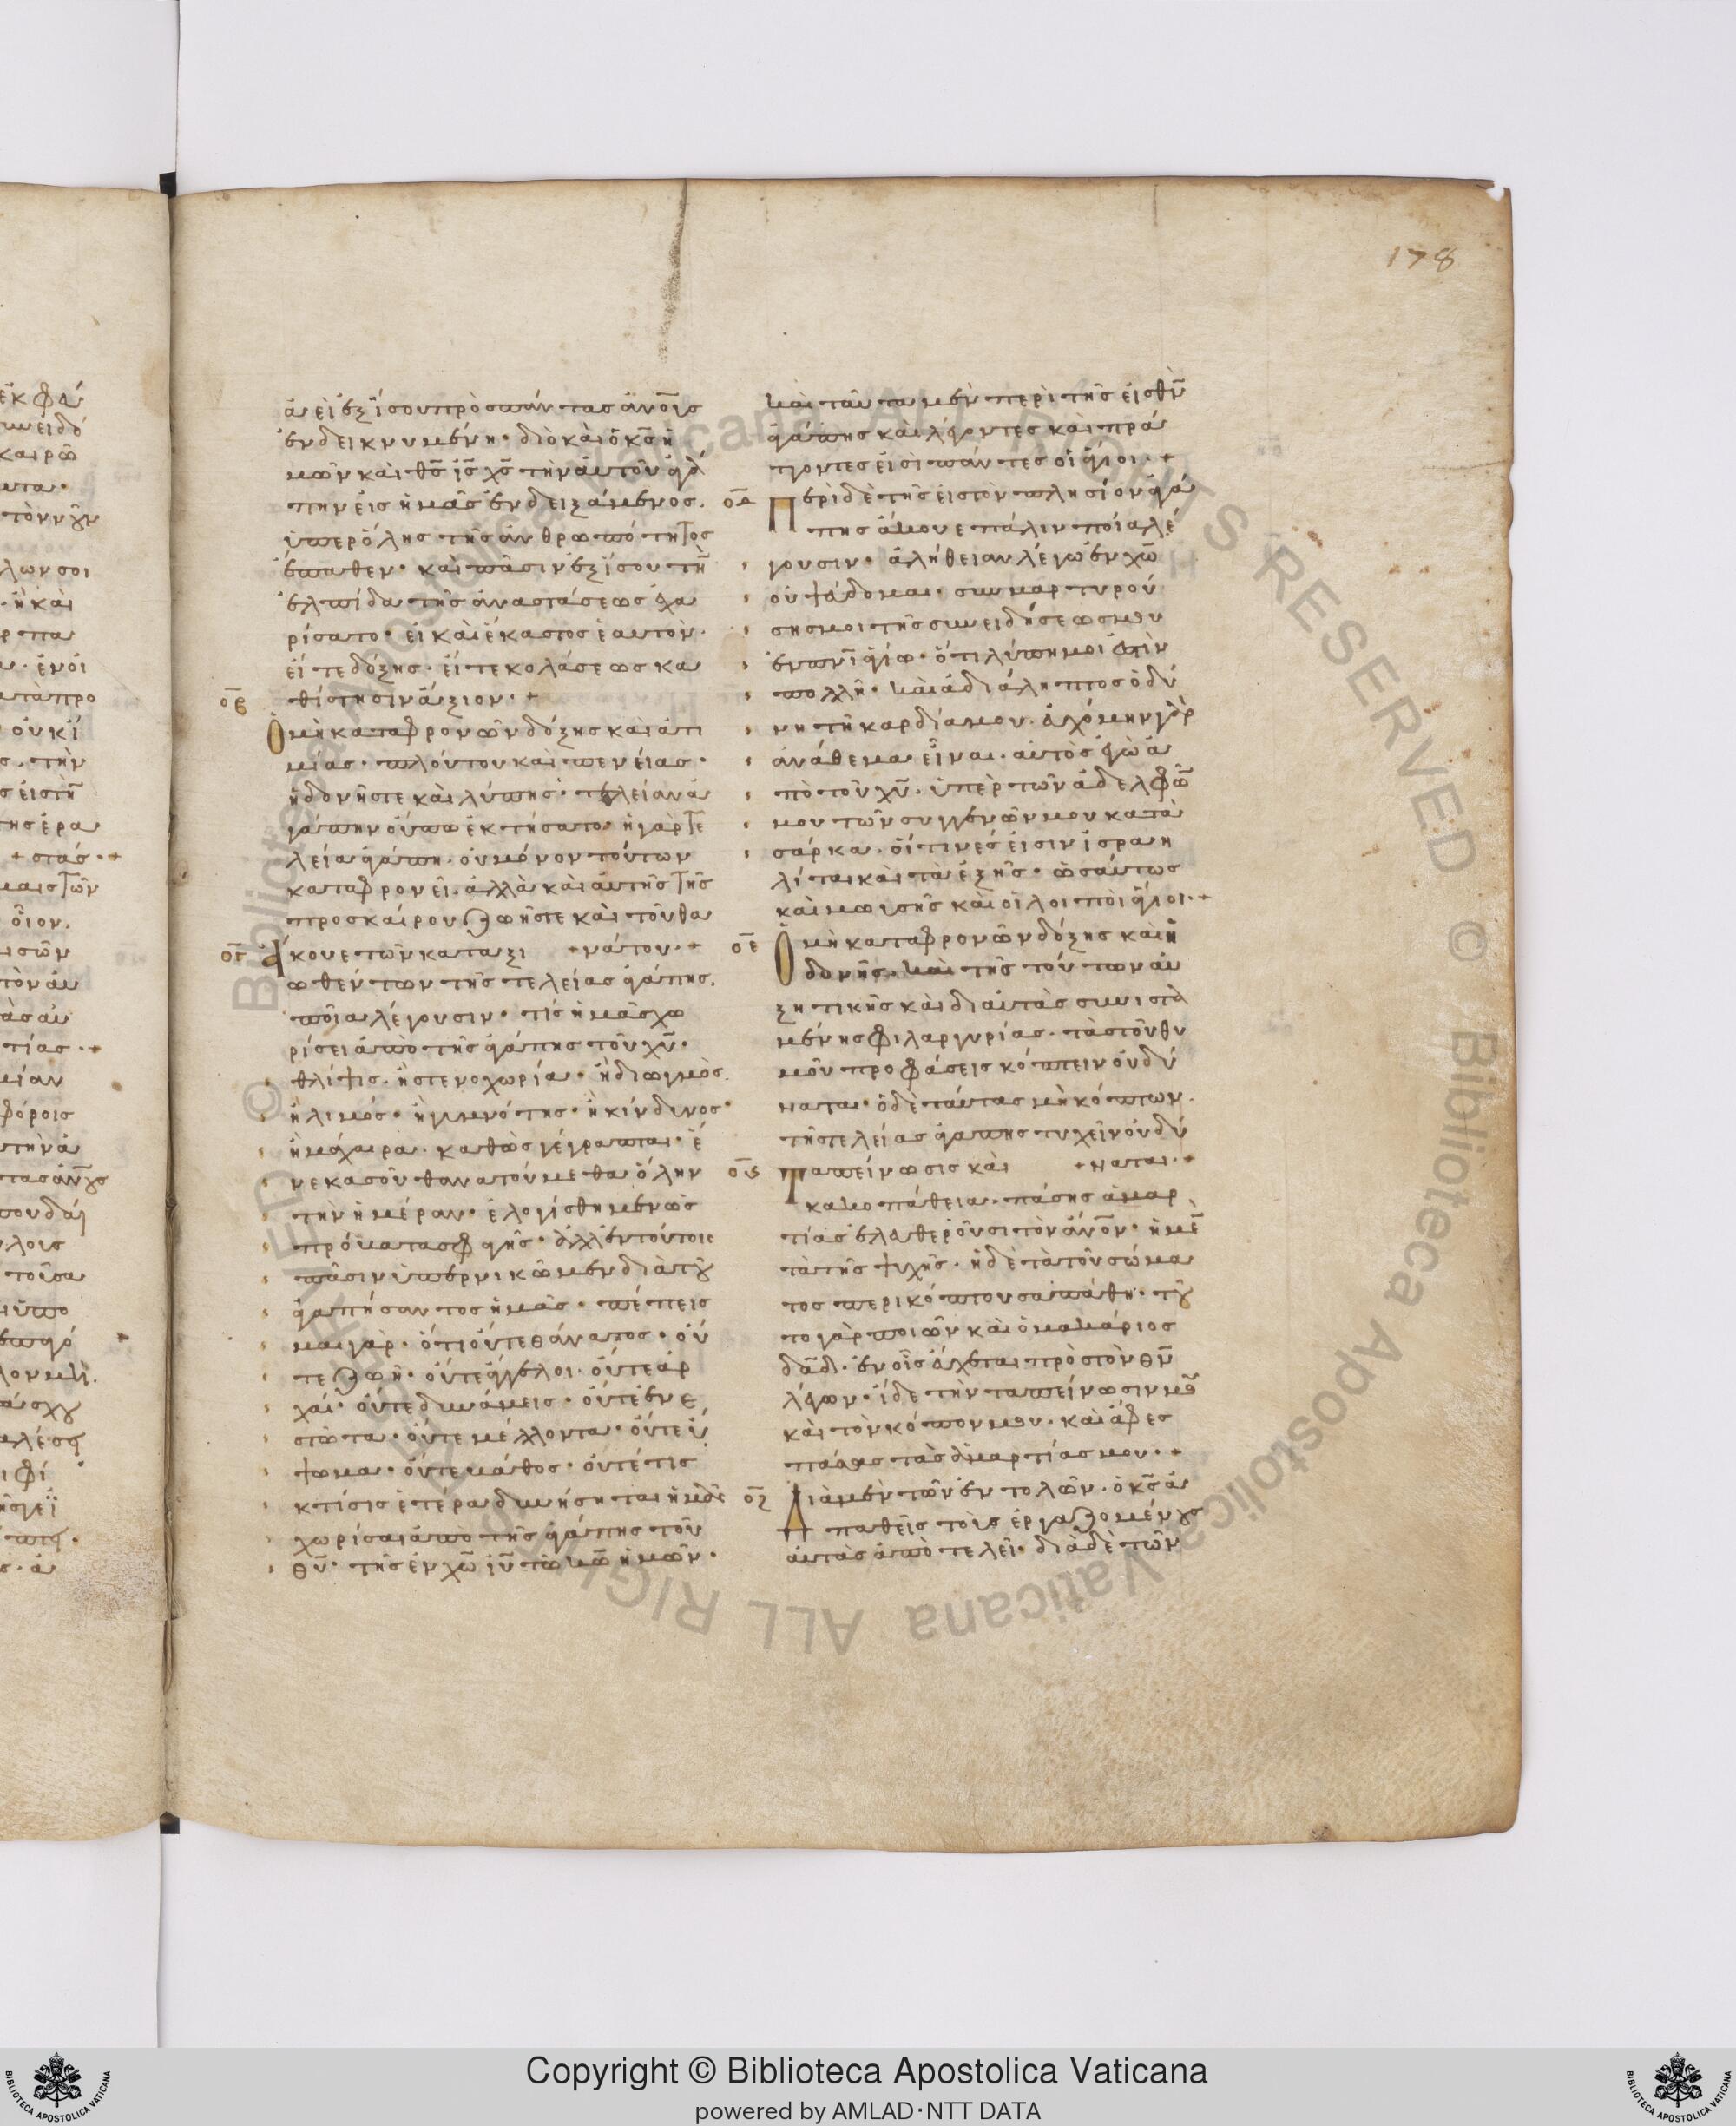 178
ἀεὶ ἐξίσου πρὸς πάντας ἀνοῖς
ἐνδεικνυμένη· διὸ καὶ ὁ κς ἡ
μῶν καὶ θς ις χς τὴν αὐτοῦ ἀγά
πην εἰς ἡμᾶς ἐνδειξάμενος.
ὑπὲρ ὅλης τῆς ἀνθρωπότητος
ἔπαθεν· καὶ πᾶσιν ἐξίσου τὴν
ἐλπίδα τῆς ἀναστάσεως ἐχα
ρίσατο· εἰ καὶ ἕκαστος ἑαυτὸν·
εἴτε δόξης· εἴτε κολάσεως κα
οβ θίστησιν ἄξιον·+
Ὁ μὴ καταφρονῶν δόξης καὶ ἀτι
μίας· πλούτου καὶ πενείας·
ἡδονῆς τε καὶ λύπης· τελείαν ἀ
γάπην οὔπω ἐκτήσατο· ἡ γὰρ τε
λεία ἀγάπη· οὐ μόνον τούτων
καταφρονεῖ· ἀλλὰ καὶ αὐτῆς τῆς
προσκαίρου ζωῆς τε καὶ τοῦ θα
ογ Ἄκουε τῶν καταξι +νάτου·+
ωθέντων τῆς τελείας ἀγάπης.
ποῖα λέγουσιν· τίς ἡμᾶς χω
ρίσει ἀπὸ τῆς ἀγάπης τοῦ χυ·
θλίψις· ἢ στενοχωρία· ἢ διωγμὸς·
ἢ λιμός· ἢ γυμνότης· ἢ κίνδυνος·
ἢ μάχαιρα· καθὼς γέγραπται· ἕ
νεκα σοῦ θανατούμεθα ὅλην
τὴν ἡμέραν· ἐλογίσθημεν ὡς
πρόβατα σφαγῆς· ἀλλ' ἐν τούτοις
πᾶσιν ὑπερνικῶμεν διὰ τοῦ
ἀγαπήσαντος ἡμᾶς· πέπεισ
μαι γὰρ· ὅτι οὔτε θάνατος· οὔ
τε ζωὴ· οὔτε ἄγγελοι· οὔτε ἀρ
χαί· οὔτε δυνάμεις· οὔτε ἐνε
στῶτα· οὔτε μέλλοντα· οὔτε ὕ
ψωμα· οὔτε βάθος· οὔτέ τις
κτίσις ἑτέρα δυνήσηται ἡμᾶς
χωρίσαι ἀπὸ τῆς ἀγάπης τοῦ
θυ· τῆς ἐν χω ιυ τῷ κω ἡμῶν·
καὶ ταῦτα μὲν περὶ τῆς εἰς θν
ἀγάπης καὶ λέγοντες καὶ πρά
ττοντες εἰσὶ πάντες οἱ ἅγιοι·+
οδ Περὶ δὲ τῆς εἰς τὸν πλησίον ἀγά
πης ἄκουε πάλιν ποῖα λέ
γουσιν· ἀλήθειαν λέγω ἐν χω
οὐ ψεύδομαι· συμμαρτυρού
σης μοι τῆς συνειδήσεώς μου
ἐν πνι ἁγίω· ὅτι λύπη μοι ἐστὶν
πολλὴ· καὶ ἀδιάληπτος ὀδύ
νη τῆ καρδία μου· εὐχόμην γὰρ
ἀνάθεμα εἶναι· αὐτὸς ἐγὼ ἀ
πὸ τοῦ χυ· ὑπὲρ τῶν ἀδελφῶν
μου τῶν συγγενῶν μου κατὰ
σάρκα· οἵτινές εἰσιν ἰσραη
λίται καὶ τὰ ἑξῆς· ὡσαύτως
καὶ μωυσῆς καὶ οἱ λοιποὶ ἅγιοι·+
οε Ὁ μὴ καταφρονῶν δόξης καὶ ἡ
δονῆς· καὶ τῆς τούτων αὐ
ξητικῆς καὶ δι' αὐτὰς συνιστα
μένης φιλαργυρίας· τὰς τοῦ θυ
μοῦ προφάσεις κόπτειν οὐ δύ
ναται· ὁ δὲ ταύτας μὴ κόπτων·
τῆς τελείας ἀγάπης τυχεῖν οὐ δύ
ος Ταπείνωσις καὶ +ναται·+
κακοπάθεια· πάσης ἁμαρ
τίας ἐλευθεροῦσι τὸν ἄνον· ἡ μὲν
τὰ τῆς ψυχῆς· ἡ δὲ τὰ τοῦ σώμα
τος περικόπτουσα πάθη· τοῦ
το γὰρ ποιῶν καὶ ὁ μακάριος
δαδ· ἐν οἷς εὔχεται πρὸς τὸν θν
λέγων· ἴδε τὴν ταπείνωσίν μου
καὶ τὸν κόπον μου· καὶ ἄφες
πάσας τὰς ἁμαρτίας μου·+
οζ Διὰ μὲν τῶν ἐντολῶν· ὁ κς ἀ
παθεῖς τοὺς ἐργαζομένους
αὐτὰς ἀποτελεῖ· διὰ δὲ τῶν
Copyright © Biblioteca Apostolica Vaticana
powered by AMLAD·NTT DATA